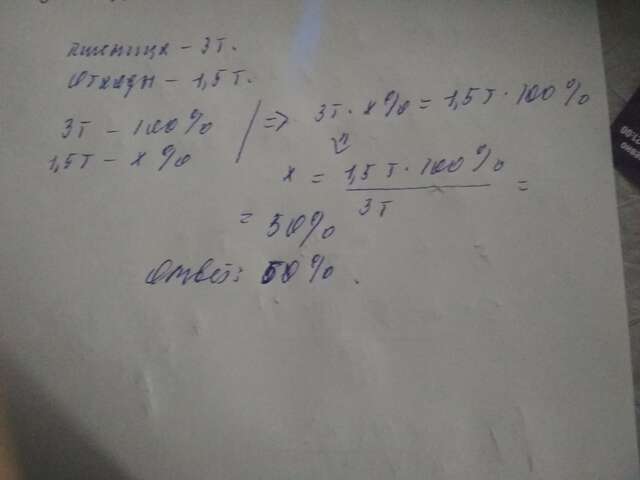 пшеница – 3т.
Отходы – 1,5т.
3т – 100%
1,5т – x%
=> 3т · x% = 1,5т · 100%
x = 1,5т · 100% / 3т =
= 50%
Ответ: 50%.